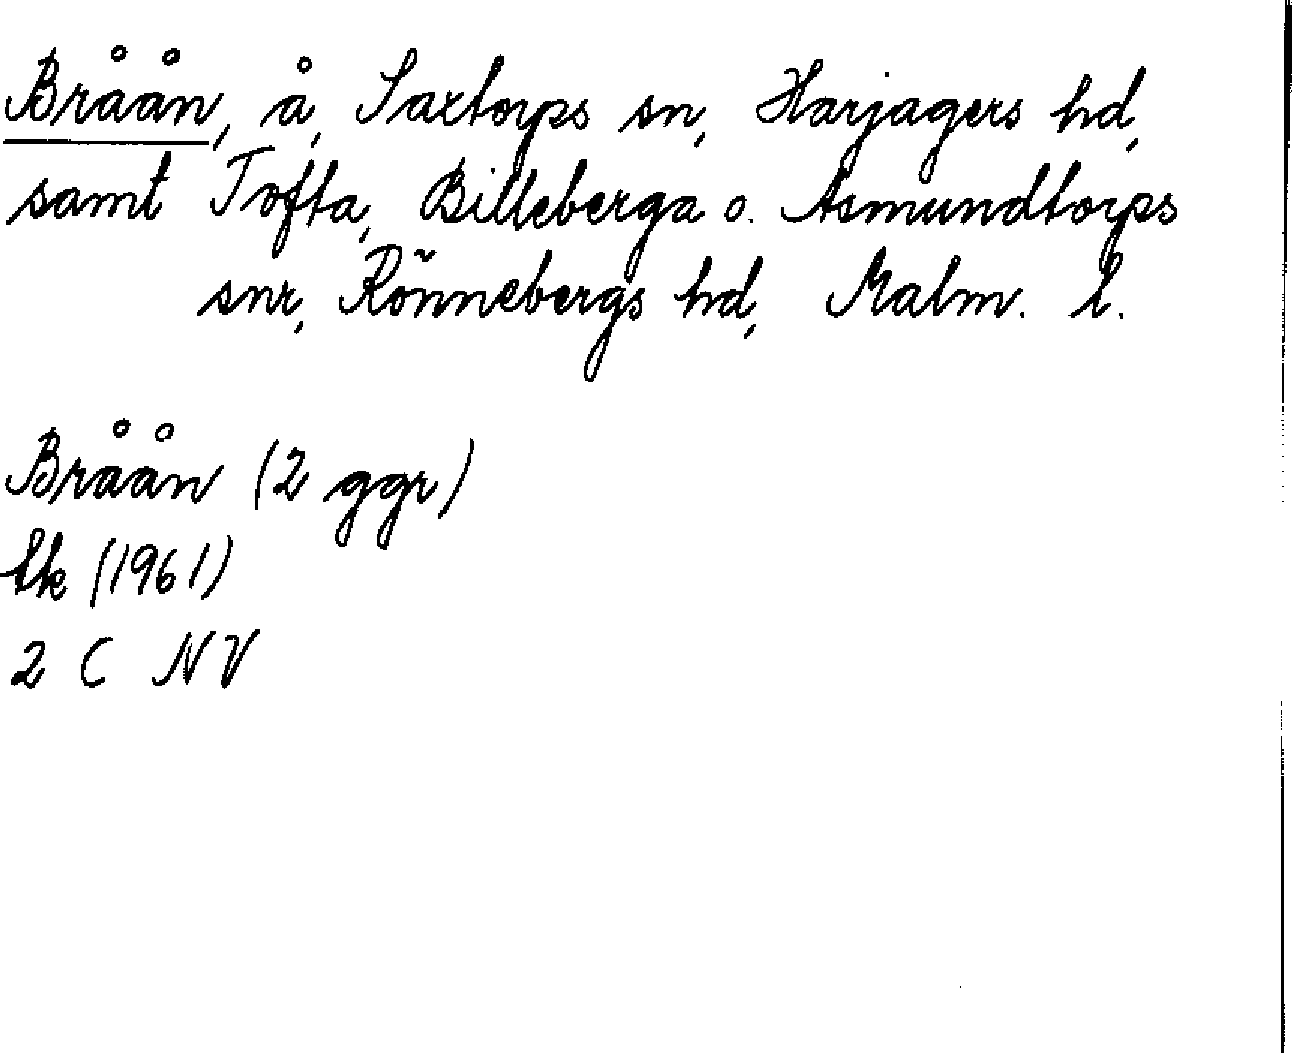 Bråån, å, Saxtorps sn, Harjagers hd,
samt Tofta, Billeberga o. Asmundtorps
snr, Rönnebergs hd, Malm. l.
Bråån (2 ggr)
Ek (1961)
2 C NV